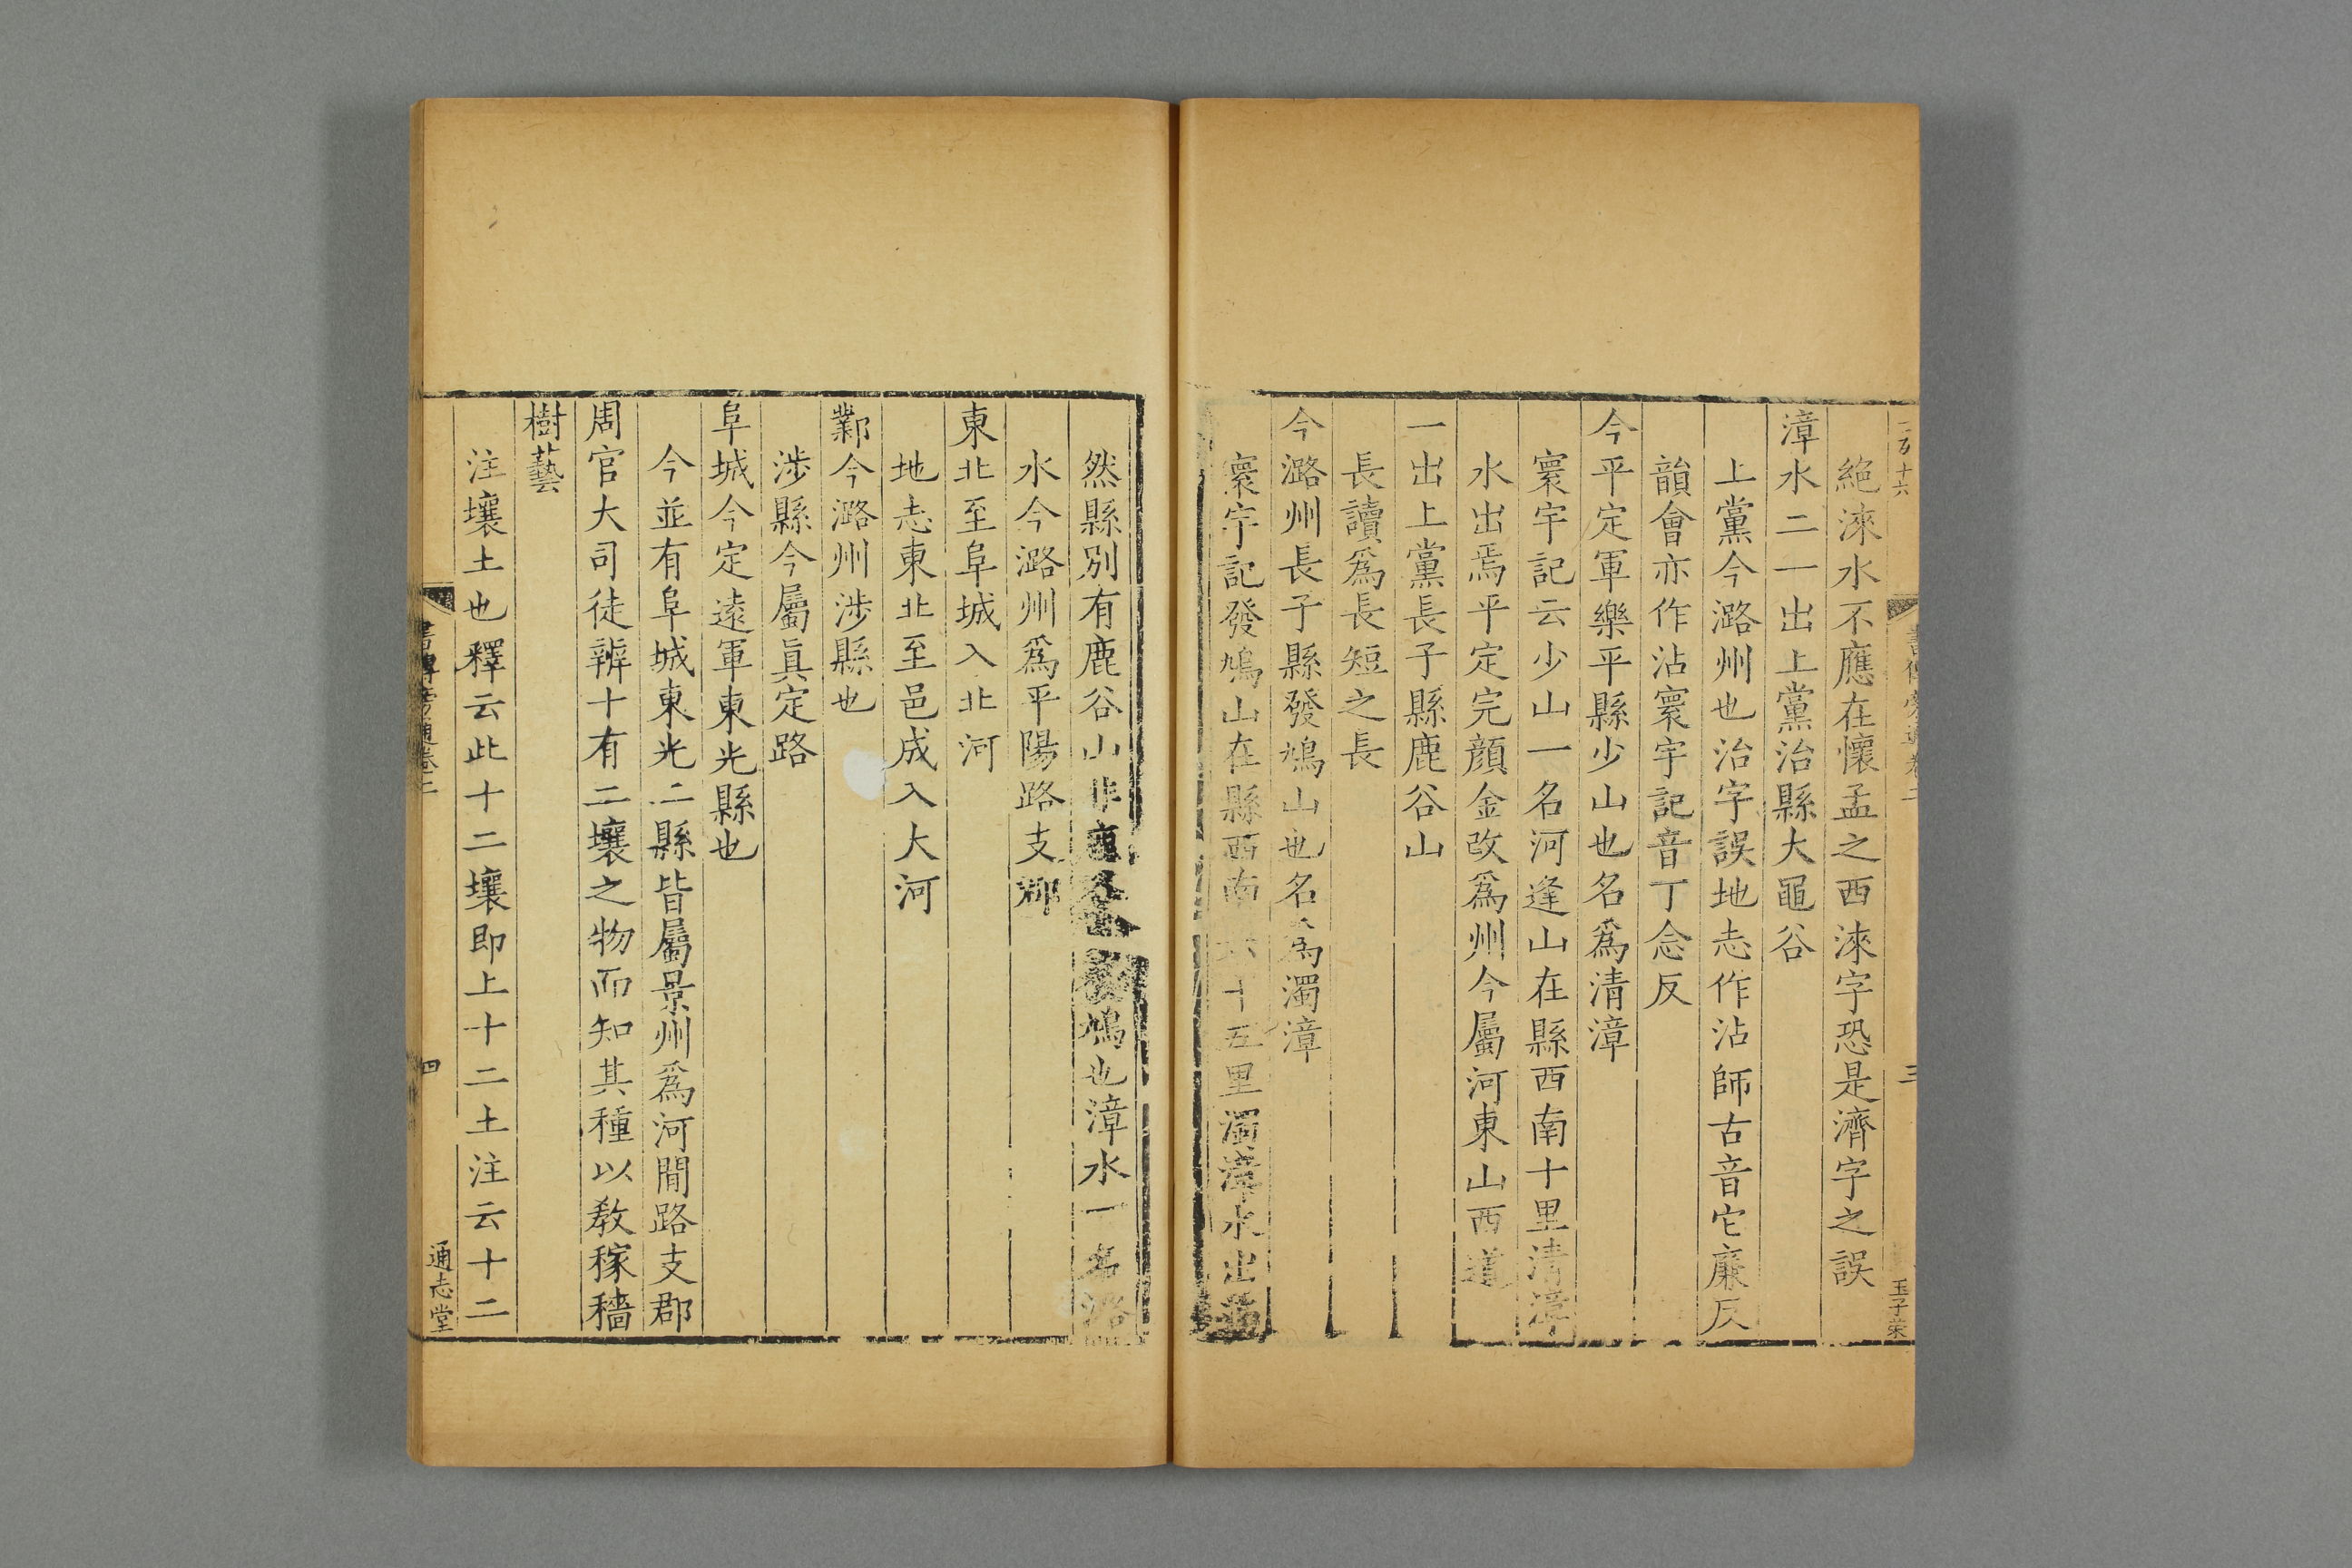 絕淶水不應在懷孟之西淶字恐是濟字之誤
漳水二一出上黨治縣大黽谷
上黨今潞州也治字誤地志作沾師古音它廉反
韻會亦作沾寰宇記音丁念反
今平定軍樂平縣少山也名爲清漳
寰宇記云少山一名河逢山在縣西南十里清漳
水出焉平定完顔金改爲州今屬河東山西道
一出上黨長子縣鹿谷山
長讀爲長短之長
今潞州長子縣發鳩山也名爲濁漳
寰宇記發鳩山在縣西南六十五里濁漳水出焉
三
然縣別有鹿谷山非鹿谷鳩也漳水一名潞
水今潞州爲平陽路支郡
東北至阜城入北河
地志東北至邑成入大河
鄴今潞州涉縣也
涉縣今屬眞定路
阜城今定遠軍東光縣也
今並有阜城東光二縣皆屬景州爲河間路支郡
周官大司徒辨十有二壤之物而知其種以教稼穡
樹藝
注壤土也釋云此十二壤即上十二土注云十二
書傳旁通卷二
四
通志堂